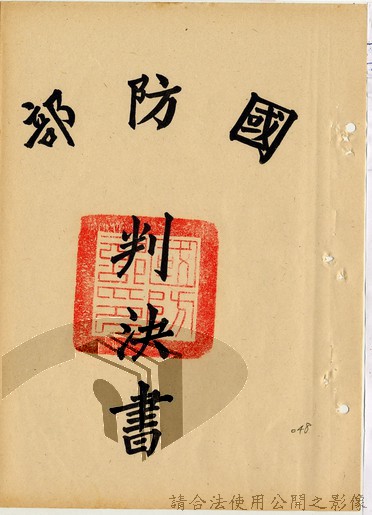 國防部
判決書
048
請合法使用公開之影像